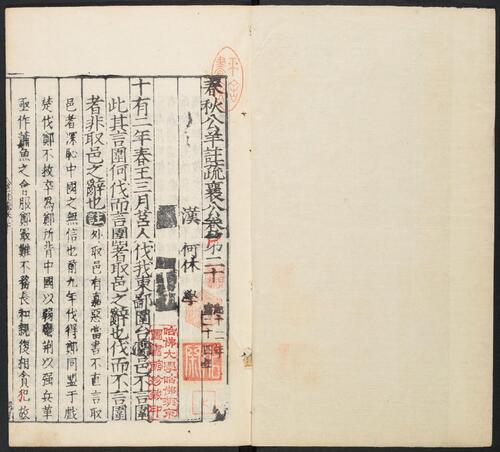 春秋公羊註疏襄公卷第二十
起十二年
盡二十四年
漢 何休 學
十有二年春王三月莒人伐我東鄙圍台邑不言圍
此其言圍何伐而言圍者取邑之辭也伐而不言圍
者非取邑之辭也註外取邑有嘉惡當書不直言取
邑者深恥中國之無信也前九年伐得鄭同盟于戲
楚伐鄭不救卒為鄭所背中國以弱蠻荊以強兵革
亟作蕭魚之會服鄭最難不務長和親復相貪犯故
哈佛大學哈佛燕京
圖書館珍藏印